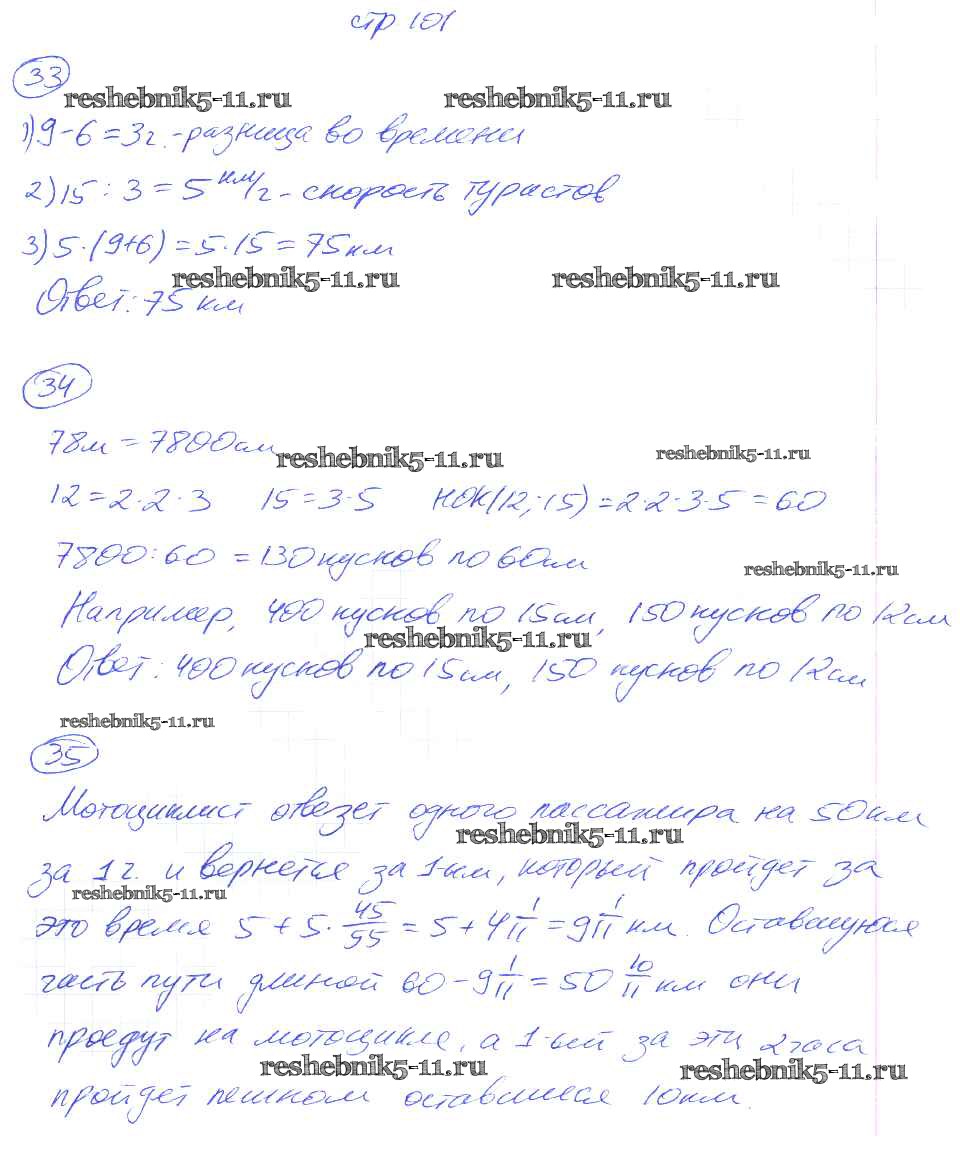 стр 101
33
reshebnik5-11.ru reshebnik5-11.ru
1) 9-6=3г.-разница во времени
2) 15:3=5 км/г-скорость туристов
3) 5·(9+6)=5·15=75км
reshebnik5-11.ru reshebnik5-11.ru
Ответ: 75 км
34
78м = 7800см
reshebnik5-11.ru reshebnik5-11.ru
12=2·2·3 15=3·5 НОК(12;15)=2·2·3·5=60
7800:60 =130кусков по 60см
reshebnik5-11.ru
Например, 400 кусков по 15см, 150 кусков по 12см
reshebnik5-11.ru
Ответ: 400 кусков по 15см, 150 кусков по 12см
reshebnik5-11.ru
35
Мотоциклист отвезет одного пассажира на 50км
reshebnik5-11.ru
за 1г. и вернется за 1-км, который пройдет за
reshebnik5-11.ru
это время 5+5·45/55=5+4 1/11=9 1/11 км. Оставшуюся
часть пути длиной 60-9 1/11=50 10/11 км они
проедут на мотоцикле, а 1-ый за эти 2 часа
reshebnik5-11.ru reshebnik5-11.ru
пройдет пешком оставшиеся 10км.